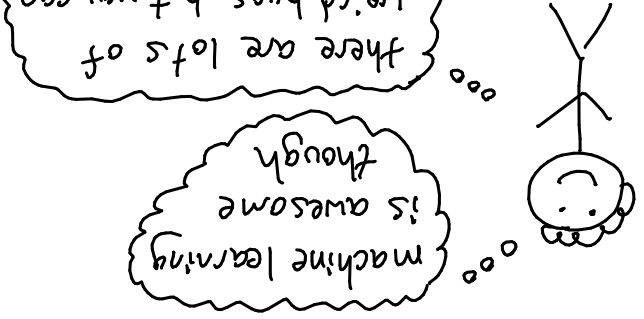 machine learning
is awesome
though
there are lots of